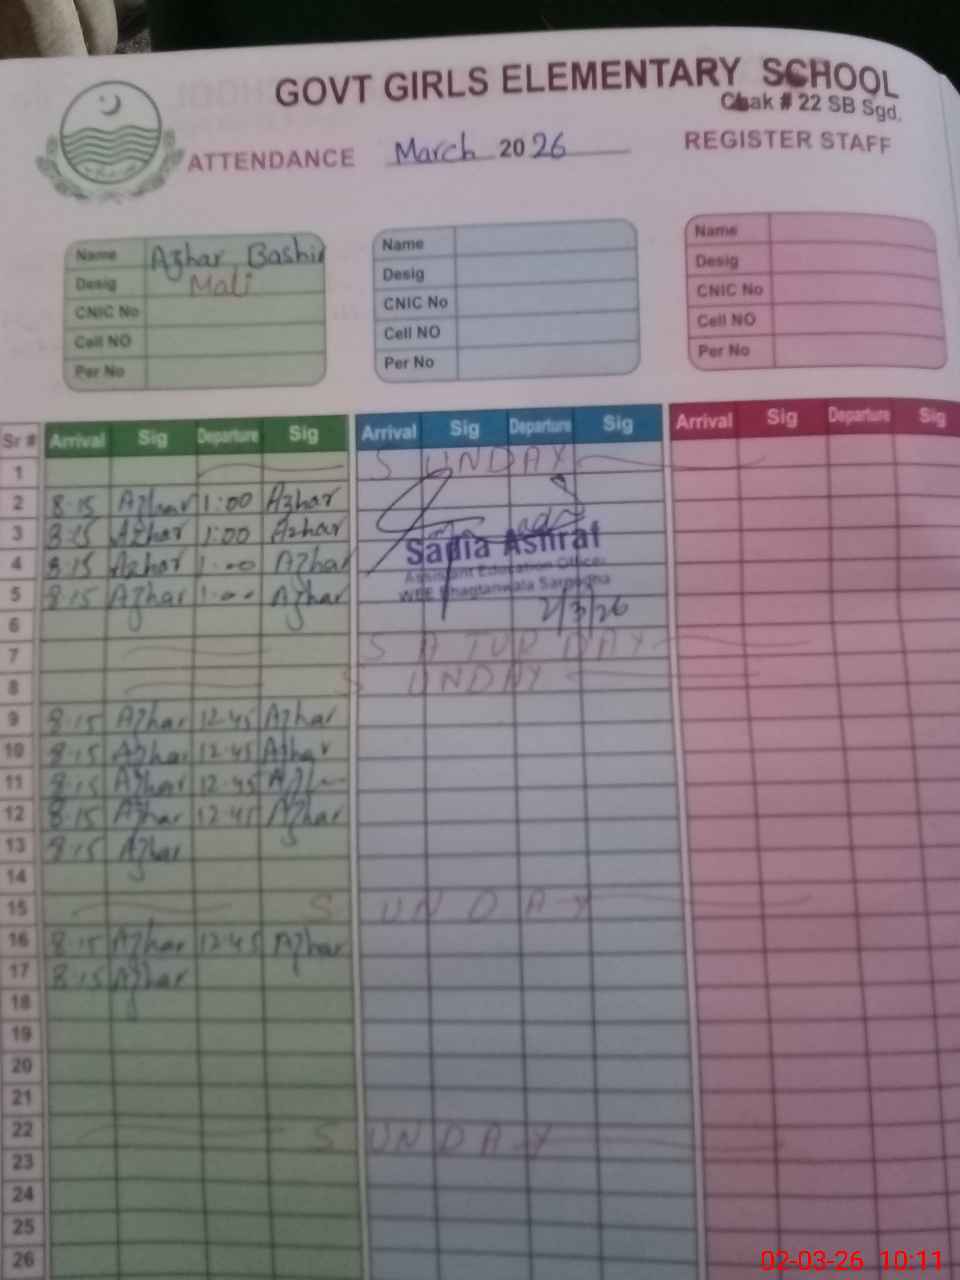 GOVT GIRLS ELEMENTARY SCHOOL
Chak # 22 SB Sgd.
ATTENDANCE March 2026 REGISTER STAFF
Name Azhar Bashir
Desig Mali
CNIC No
Cell NO
Per No
Name
Desig
CNIC No
Cell NO
Per No
Name
Desig
CNIC No
Cell NO
Per No
Sr # Arrival Sig Departure Sig Arrival Sig Departure Sig Arrival Sig Departure Sig
1 SUNDAY
2 8:15 Azhar 1:00 Azhar
3 8:15 Azhar 1:00 Azhar
Sadia Ashraf
4 8:15 Azhar 1:00 Azhar
Assistant Education Officer
5 8:15 Azhar 1:00 Azhar
WEE Bhagtanwala Sargodha
2/3/26
6
7 SATURDAY
8 SUNDAY
9 8:15 Azhar 12:45 Azhar
10 8:15 Azhar 12:45 Azhar
11 8:15 Azhar 12:45 Azhar
12 8:15 Azhar 12:45 Azhar
13 8:15 Azhar
14
15 SUNDAY
16 8:15 Azhar 12:45 Azhar
17 8:15 Azhar
18
19
20
21
22 SUNDAY
23
24
25
26
02-03-26 10:11